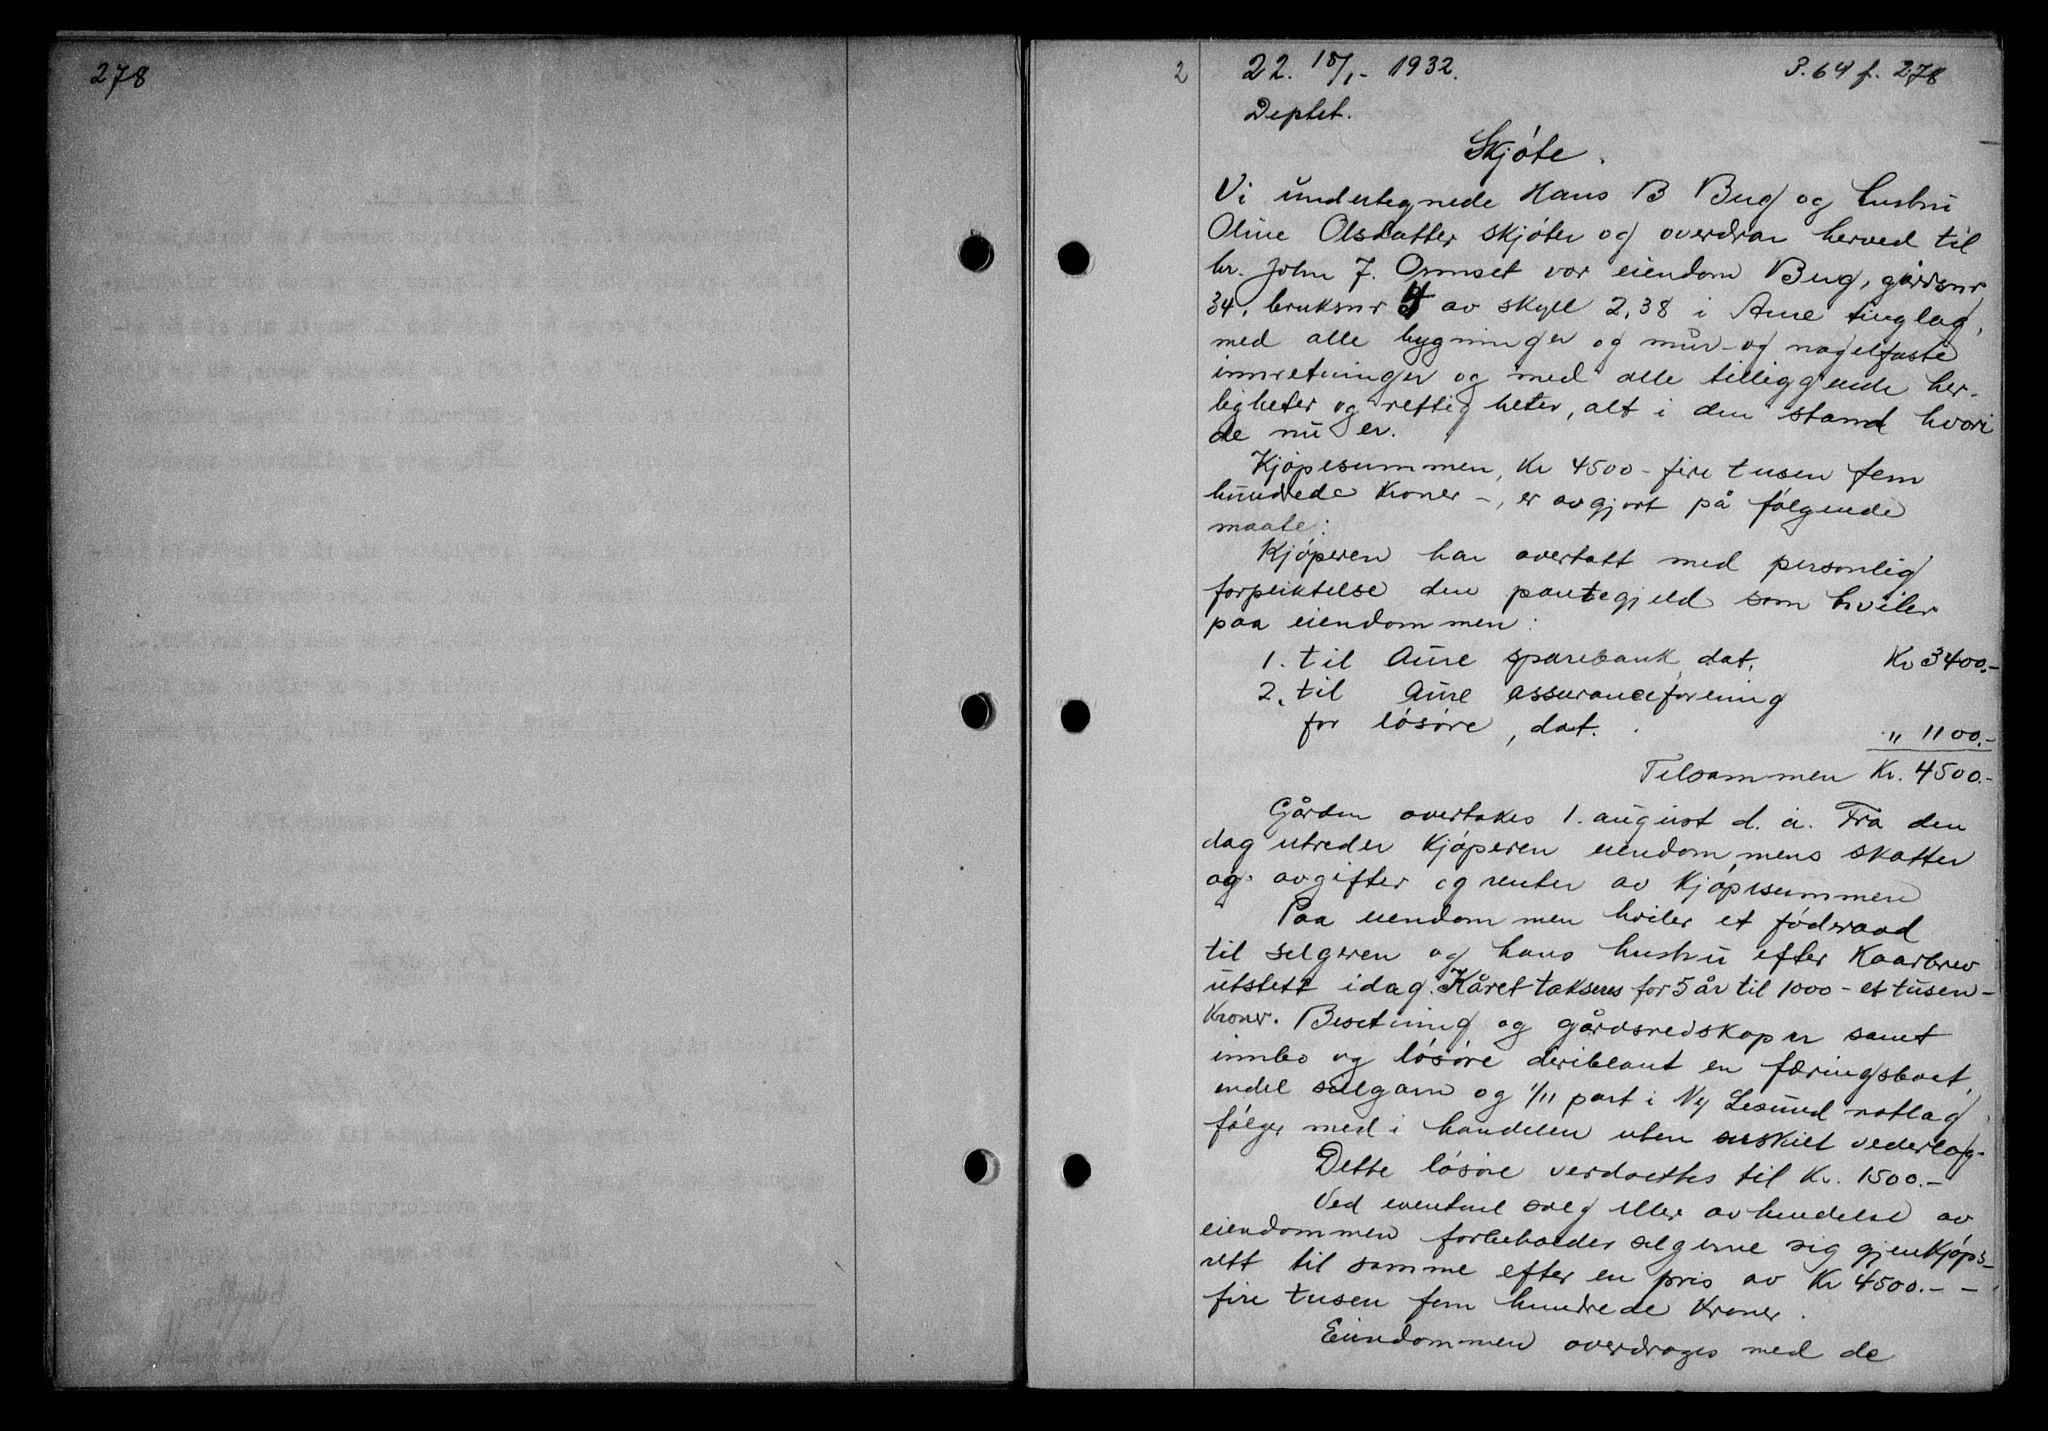 278
2
22. 18/1- 1932.
3.64 f. 278
Deptet.
Skjøte.
Vi undertegnede Hans B Bug og hustru
Oline Olsdatter skjøter og overdrar herved til
hr. John J. Ormset vor eiendom Bug, gårdsnr
34, bruksnr 4 av skyll 2,38 i Aure tinglag,
med alle bygninger og mur- og nagelfaste
innretninger og med alle tilliggende her-
ligheter og rettigheter, alt i den stand hvori
de nu er.
Kjøpesummen, Kr 4500 - fire tusen fem
hundrede Kroner -, er avgjort på følgende
maate:
Kjøperen har overtatt med personlig
forpliktelse den pantegjeld som hviler
paa eiendommen:
1. til Aure sparebank, dat. Kr 3400.-
2. til Aure assuranceforening
for løsøre, dat. " 1100.-
Tilsammen Kr. 4500.-
Gården overtakes 1. august d. a. Fra den
dag utreder Kjøperen eiendommens skatter
og avgifter og renter av Kjøpesummen
Paa eiendommen hviler et føderaad
til selgeren og hans hustru efter Kaarbrev
utstett idag. Kåret takseres for 5 år til 1000 - et tusen -
Kroner. Besetning og gårdsredskaper samt
innbo og løsøre deriblant en færingsbaat,
endel silegarn og 1/11 part i Ny Lesund notlag
følger med i handelen uten særskilt vederlag.
Dette løsøre verdsettes til Kr. 1500.-
Ved eventuel salg eller avhendelse av
eiendommen forbeholder selgerne sig gjenkjøps-
rett til samme efter en pris av Kr 4500.- -
fire tusen fem hundrede Kroner.
Eiendommen overdrages med de